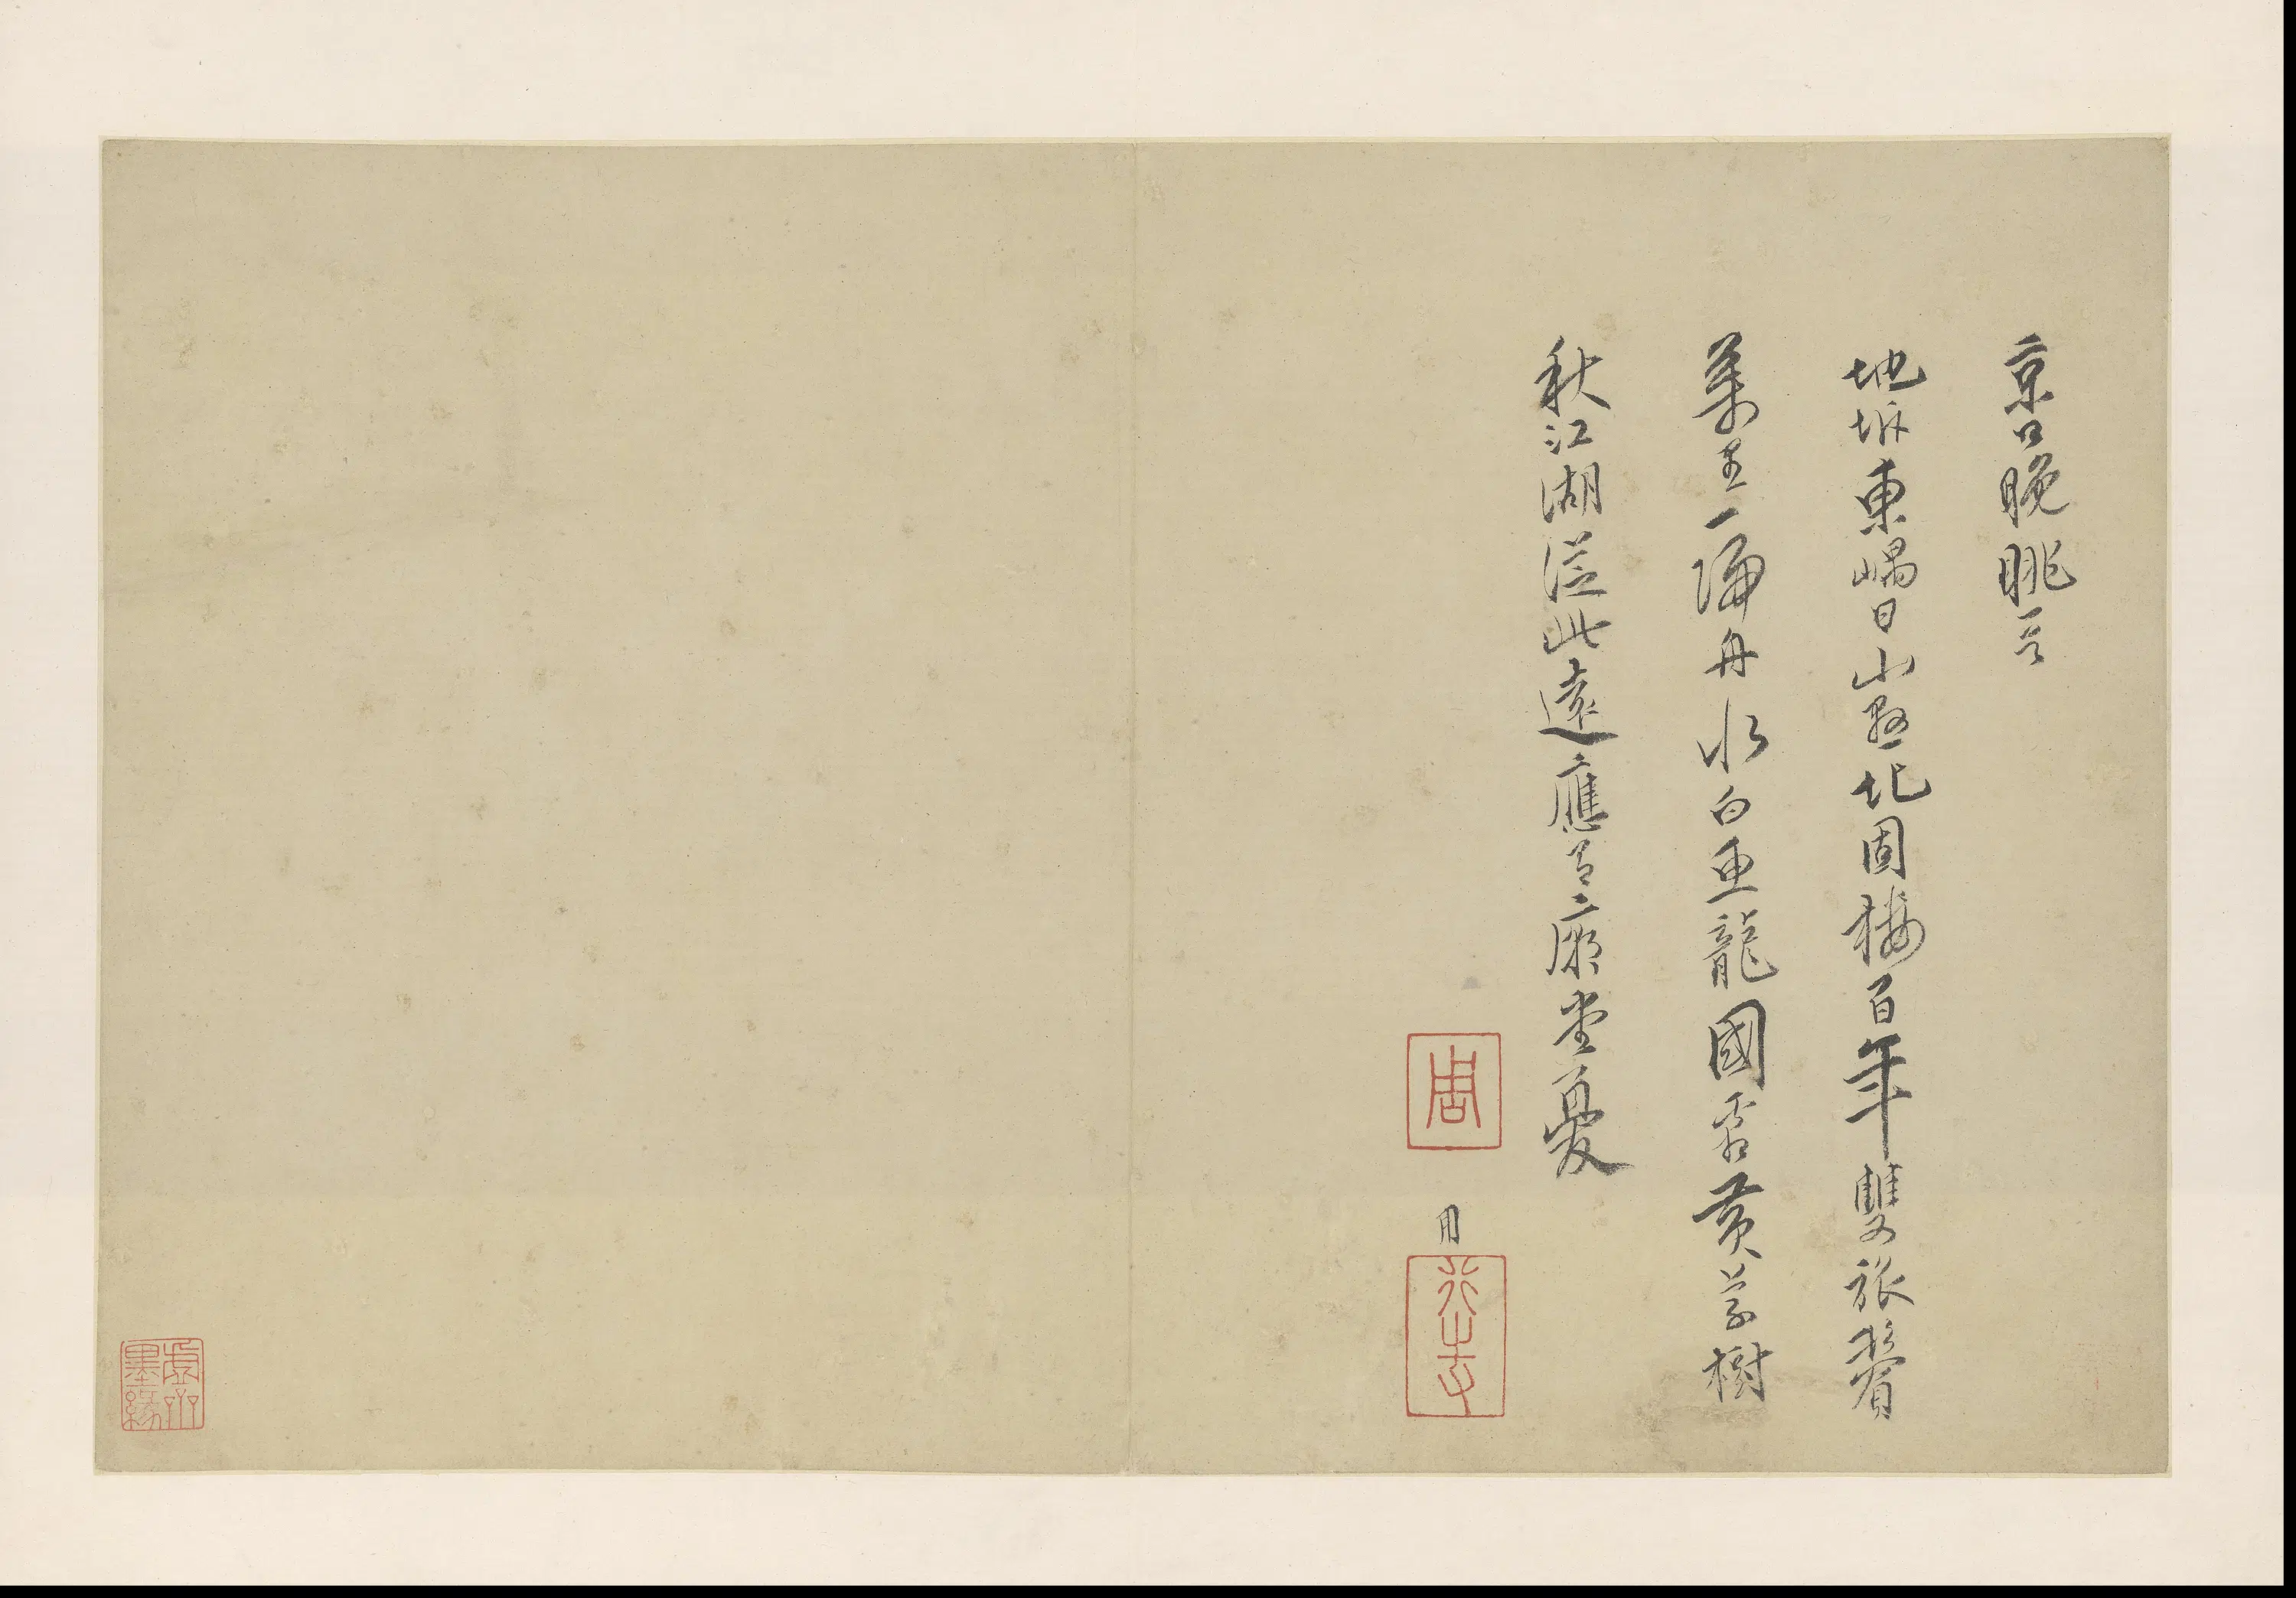 京口晚眺
地坼東嵎日山懸北固樓百年雙旅鬢
萬里一歸舟水白魚龍國霜黃草樹
秋江湖從此遠應有廟堂憂
周
用
行之
虛齋墨緣